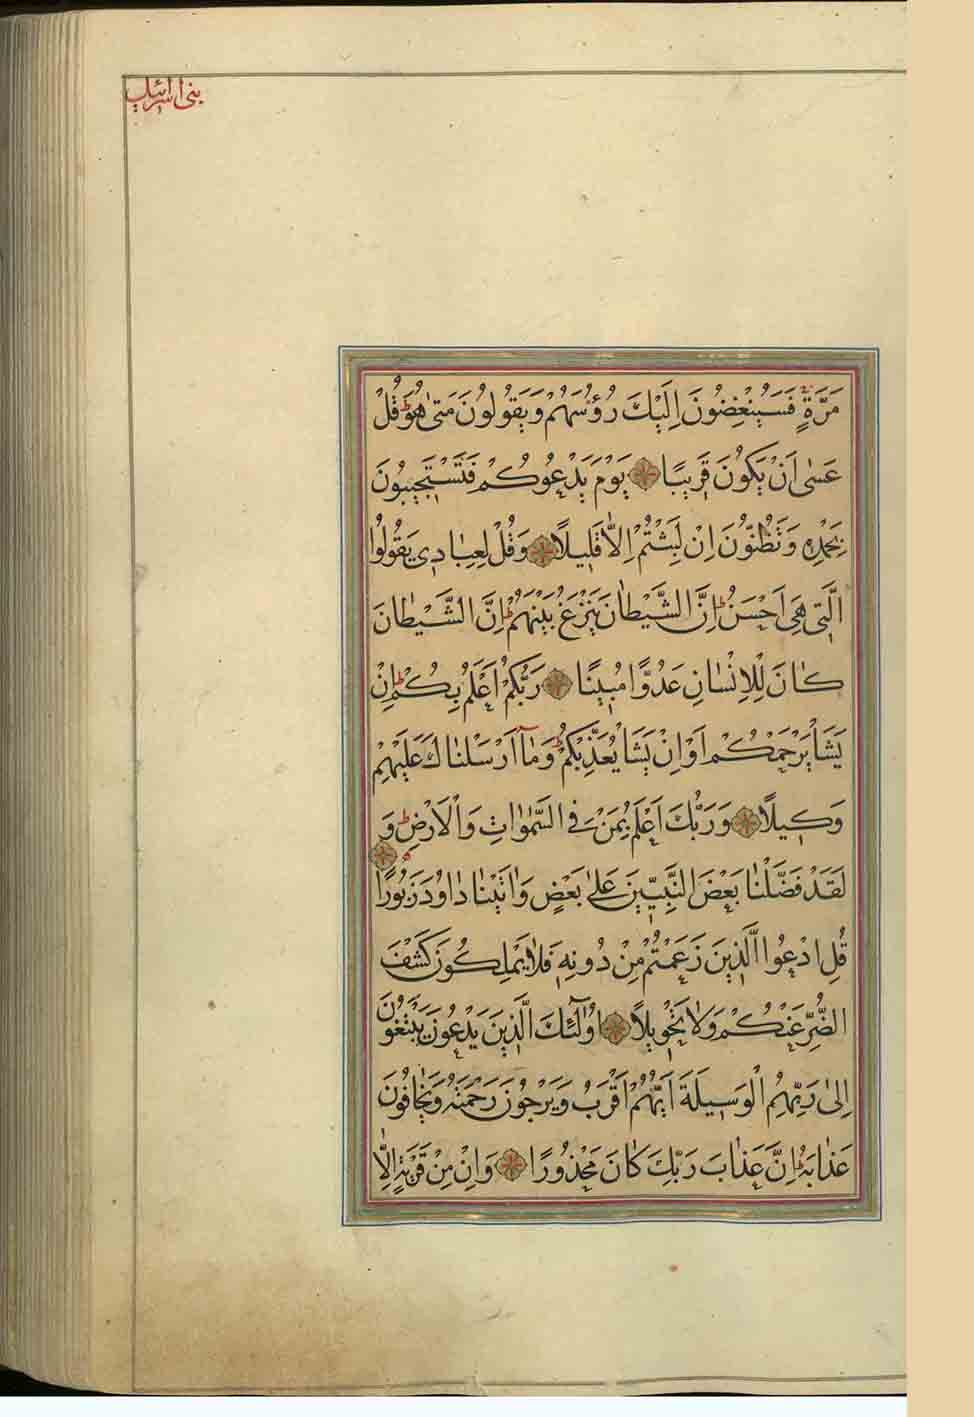 بنی اسرائیل
مَرَّةٍ فَسَيُنْغِضُونَ اِلَيْكَ رُؤُسَهُمْ وَيَقُولُونَ مَتٰى هُوَ قُلْ
عَسٰى اَنْ يَكُونَ قَرِيبًا يَوْمَ يَدْعُوكُمْ فَتَسْتَجِيبُونَ
بِحَمْدِهِ وَتَظُنُّونَ اِنْ لَبِثْتُمْ اِلَّا قَلِيلًا وَقُلْ لِعِبَادِى يَقُولُوا
الَّتِى هِىَ اَحْسَنُ ط اِنَّ الشَّيْطَانَ يَنْزَغُ بَيْنَهُمْ ط اِنَّ الشَّيْطَانَ
كَانَ لِلْاِنْسَانِ عَدُوًّا مُبِينًا رَبُّكُمْ اَعْلَمُ بِكُمْ ط اِنْ
يَشَأْ يَرْحَمْكُمْ اَوْ اِنْ يَشَأْ يُعَذِّبْكُمْ ط وَمَآ اَرْسَلْنَاكَ عَلَيْهِمْ
وَكِيلًا وَرَبُّكَ اَعْلَمُ بِمَنْ فِى السَّمٰوَاتِ وَالْاَرْضِ ط وَ
لَقَدْ فَضَّلْنَا بَعْضَ النَّبِيِّينَ عَلٰى بَعْضٍ وَاٰتَيْنَا دَاوُدَ زَبُورًا
قُلِ ادْعُوا الَّذِينَ زَعَمْتُمْ مِنْ دُونِهِ فَلَا يَمْلِكُونَ كَشْفَ
الضُّرِّ عَنْكُمْ وَلَا تَحْوِيلًا اُولٰٓئِكَ الَّذِينَ يَدْعُونَ يَبْتَغُونَ
اِلٰى رَبِّهِمُ الْوَسِيلَةَ اَيُّهُمْ اَقْرَبُ وَيَرْجُونَ رَحْمَتَهُ وَيَخَافُونَ
عَذَابَهُ ط اِنَّ عَذَابَ رَبِّكَ كَانَ مَحْذُورًا وَاِنْ مِنْ قَرْيَةٍ اِلَّا